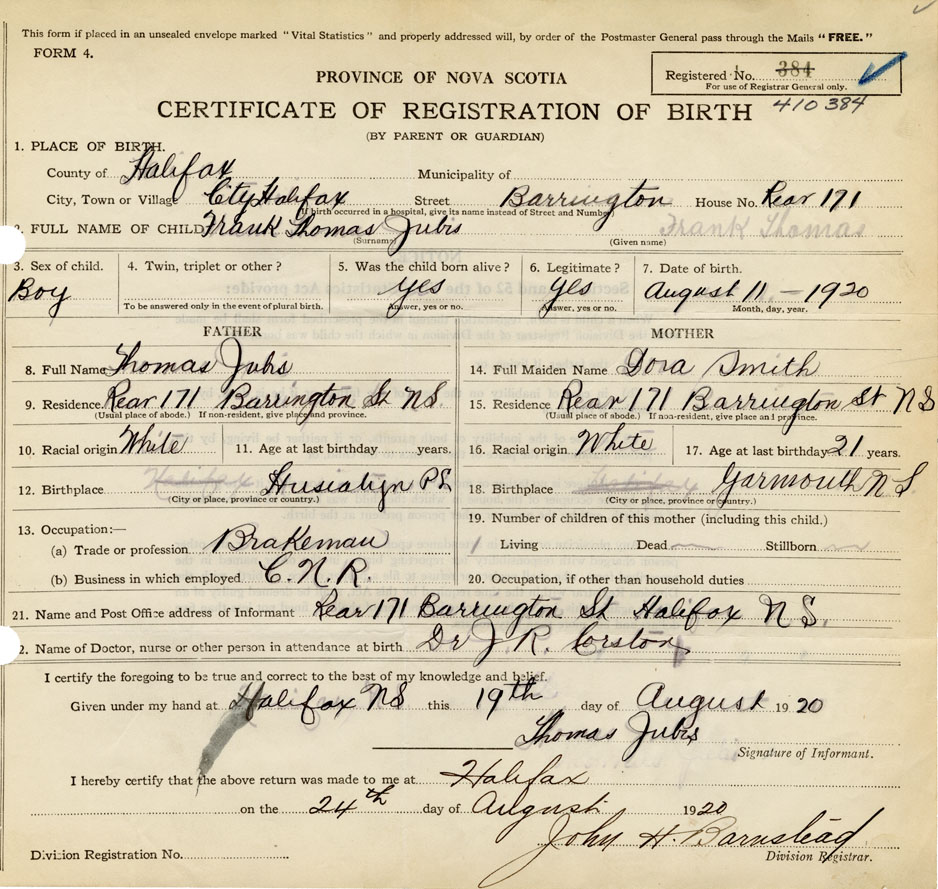 This form if placed in an unsealed envelope marked "Vital Statistics" and properly addressed will, by order of the Postmaster General pass through the Mails "FREE."
FORM 4.
PROVINCE OF NOVA SCOTIA
Registered No. 384
For use of Registrar General only.
410384
CERTIFICATE OF REGISTRATION OF BIRTH
(BY PARENT OR GUARDIAN)
1. PLACE OF BIRTH.
County of Halifax Municipality of
City, Town or Village City Halifax Street Barrington House No. Rear 171
(If birth occurred in a hospital, give its name instead of Street and Number)
2. FULL NAME OF CHILD Frank Thomas Jubis Frank Thomas
(Surname) (Given name)
3. Sex of child. 4. Twin, triplet or other? 5. Was the child born alive? 6. Legitimate? 7. Date of birth.
Boy yes yes August 11 - 1920
To be answered only in the event of plural birth. Answer, yes or no. Answer, yes or no. Month, day, year.
FATHER MOTHER
8. Full Name Thomas Jubis 14. Full Maiden Name Dora Smith
9. Residence Rear 171 Barrington St NS 15. Residence Rear 171 Barrington St NS
(Usual place of abode.) If non-resident, give place and province. (Usual place of abode.) If non-resident, give place and province.
10. Racial origin White 11. Age at last birthday years. 16. Racial origin White 17. Age at last birthday 21 years.
12. Birthplace Halifax 18. Birthplace Halifax Yarmouth N S
(City or place, province or country.) (City or place, province or country.)
13. Occupation:— 19. Number of children of this mother (including this child.)
(a) Trade or profession Brakeman 1 Living Dead Stillborn
(b) Business in which employed C.N.R. 20. Occupation, if other than household duties
21. Name and Post Office address of Informant Rear 171 Barrington St Halifax N S.
2. Name of Doctor, nurse or other person in attendance at birth Dr J. R. Corston
I certify the foregoing to be true and correct to the best of my knowledge and belief.
Given under my hand at Halifax NS this 19th day of August 19 20
Thomas Jubis
Signature of Informant.
I hereby certify that the above return was made to me at Halifax
on the 24th day of August 1920
John H. Barnstead
Division Registration No. Division Registrar.